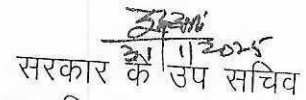 21/1/2025
सरकार के उप सचिव